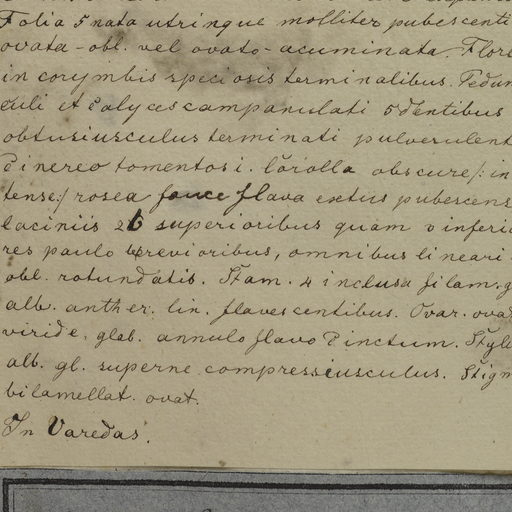 Folia 5 nata utrinque molliter pubescenti
ovata-obl. vel ovato-acuminata. Flore
in corymbis speciosis terminalibus. Pedun
culi et calyces campanulati 5 dentibus
obtusiusculus terminati pulverulent
cinereo tomentosi. Corolla obscure /: in
tense :/ rosea fauce flava extus pubescens
laciniis 2 superioribus quam 3 inferio
res paulo brevioribus, omnibus lineari
obl. rotundatis. Stam. 4 inclusa filam. g
alb. anther. lin. flavescentibus. Ovar. ovat
viride, glab. annulo flavo cinctum. Styl
alb. gl. superne compressiusculus. Stigm
bilamellat. ovat.
In Varedas.